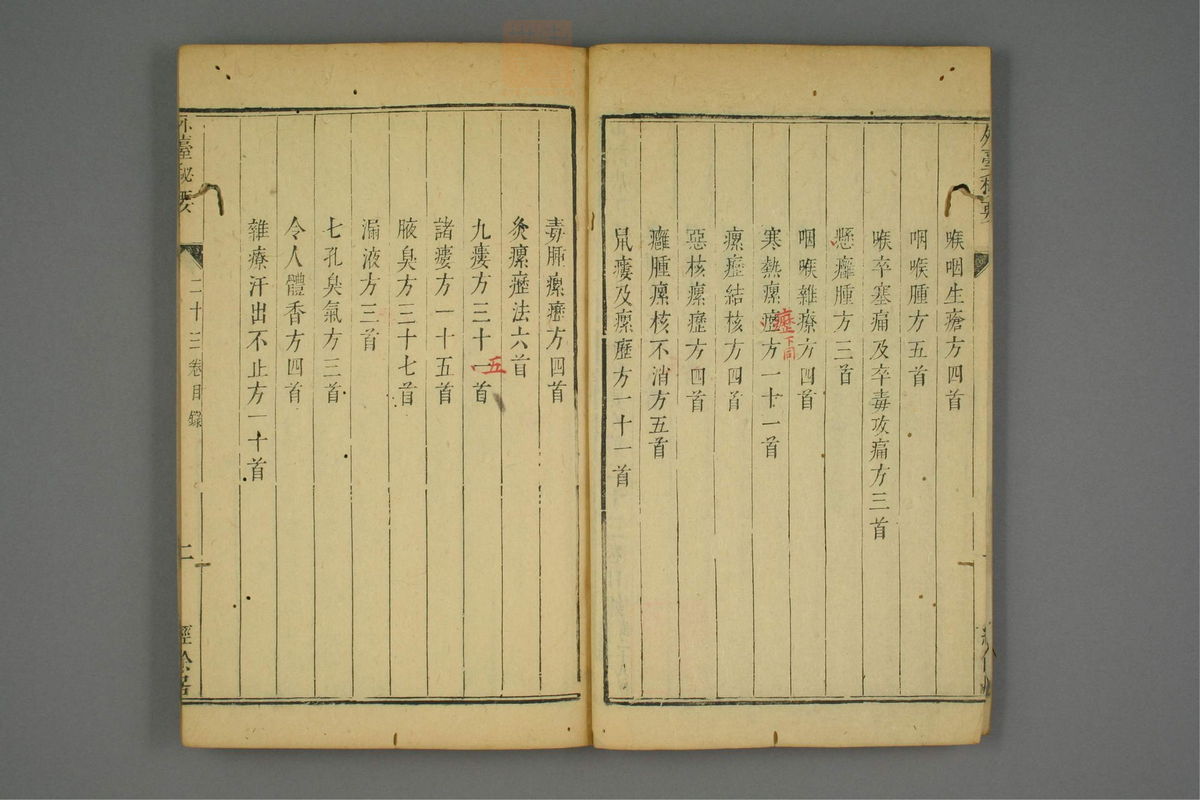 喉咽生瘡方四首
咽喉腫方五首
喉卒塞痛及卒毒攻痛方三首
懸癰腫方三首
咽喉雜療方四首
寒熱瘰癧方一十一首
癧下同
瘰癧結核方四首
惡核瘰癧方四首
癰腫瘰核不消方五首
鼠瘻及瘰癧方十一首
毒腫瘰癧方四首
灸瘰癧法六首
九瘻方三十一首
五
諸瘻方一十五首
腋臭方三十七首
漏液方三首
七孔臭氣方三首
令人體香方四首
雜療汗出不止方一十首
外臺秘要
二十三卷目錄
二
經餘居